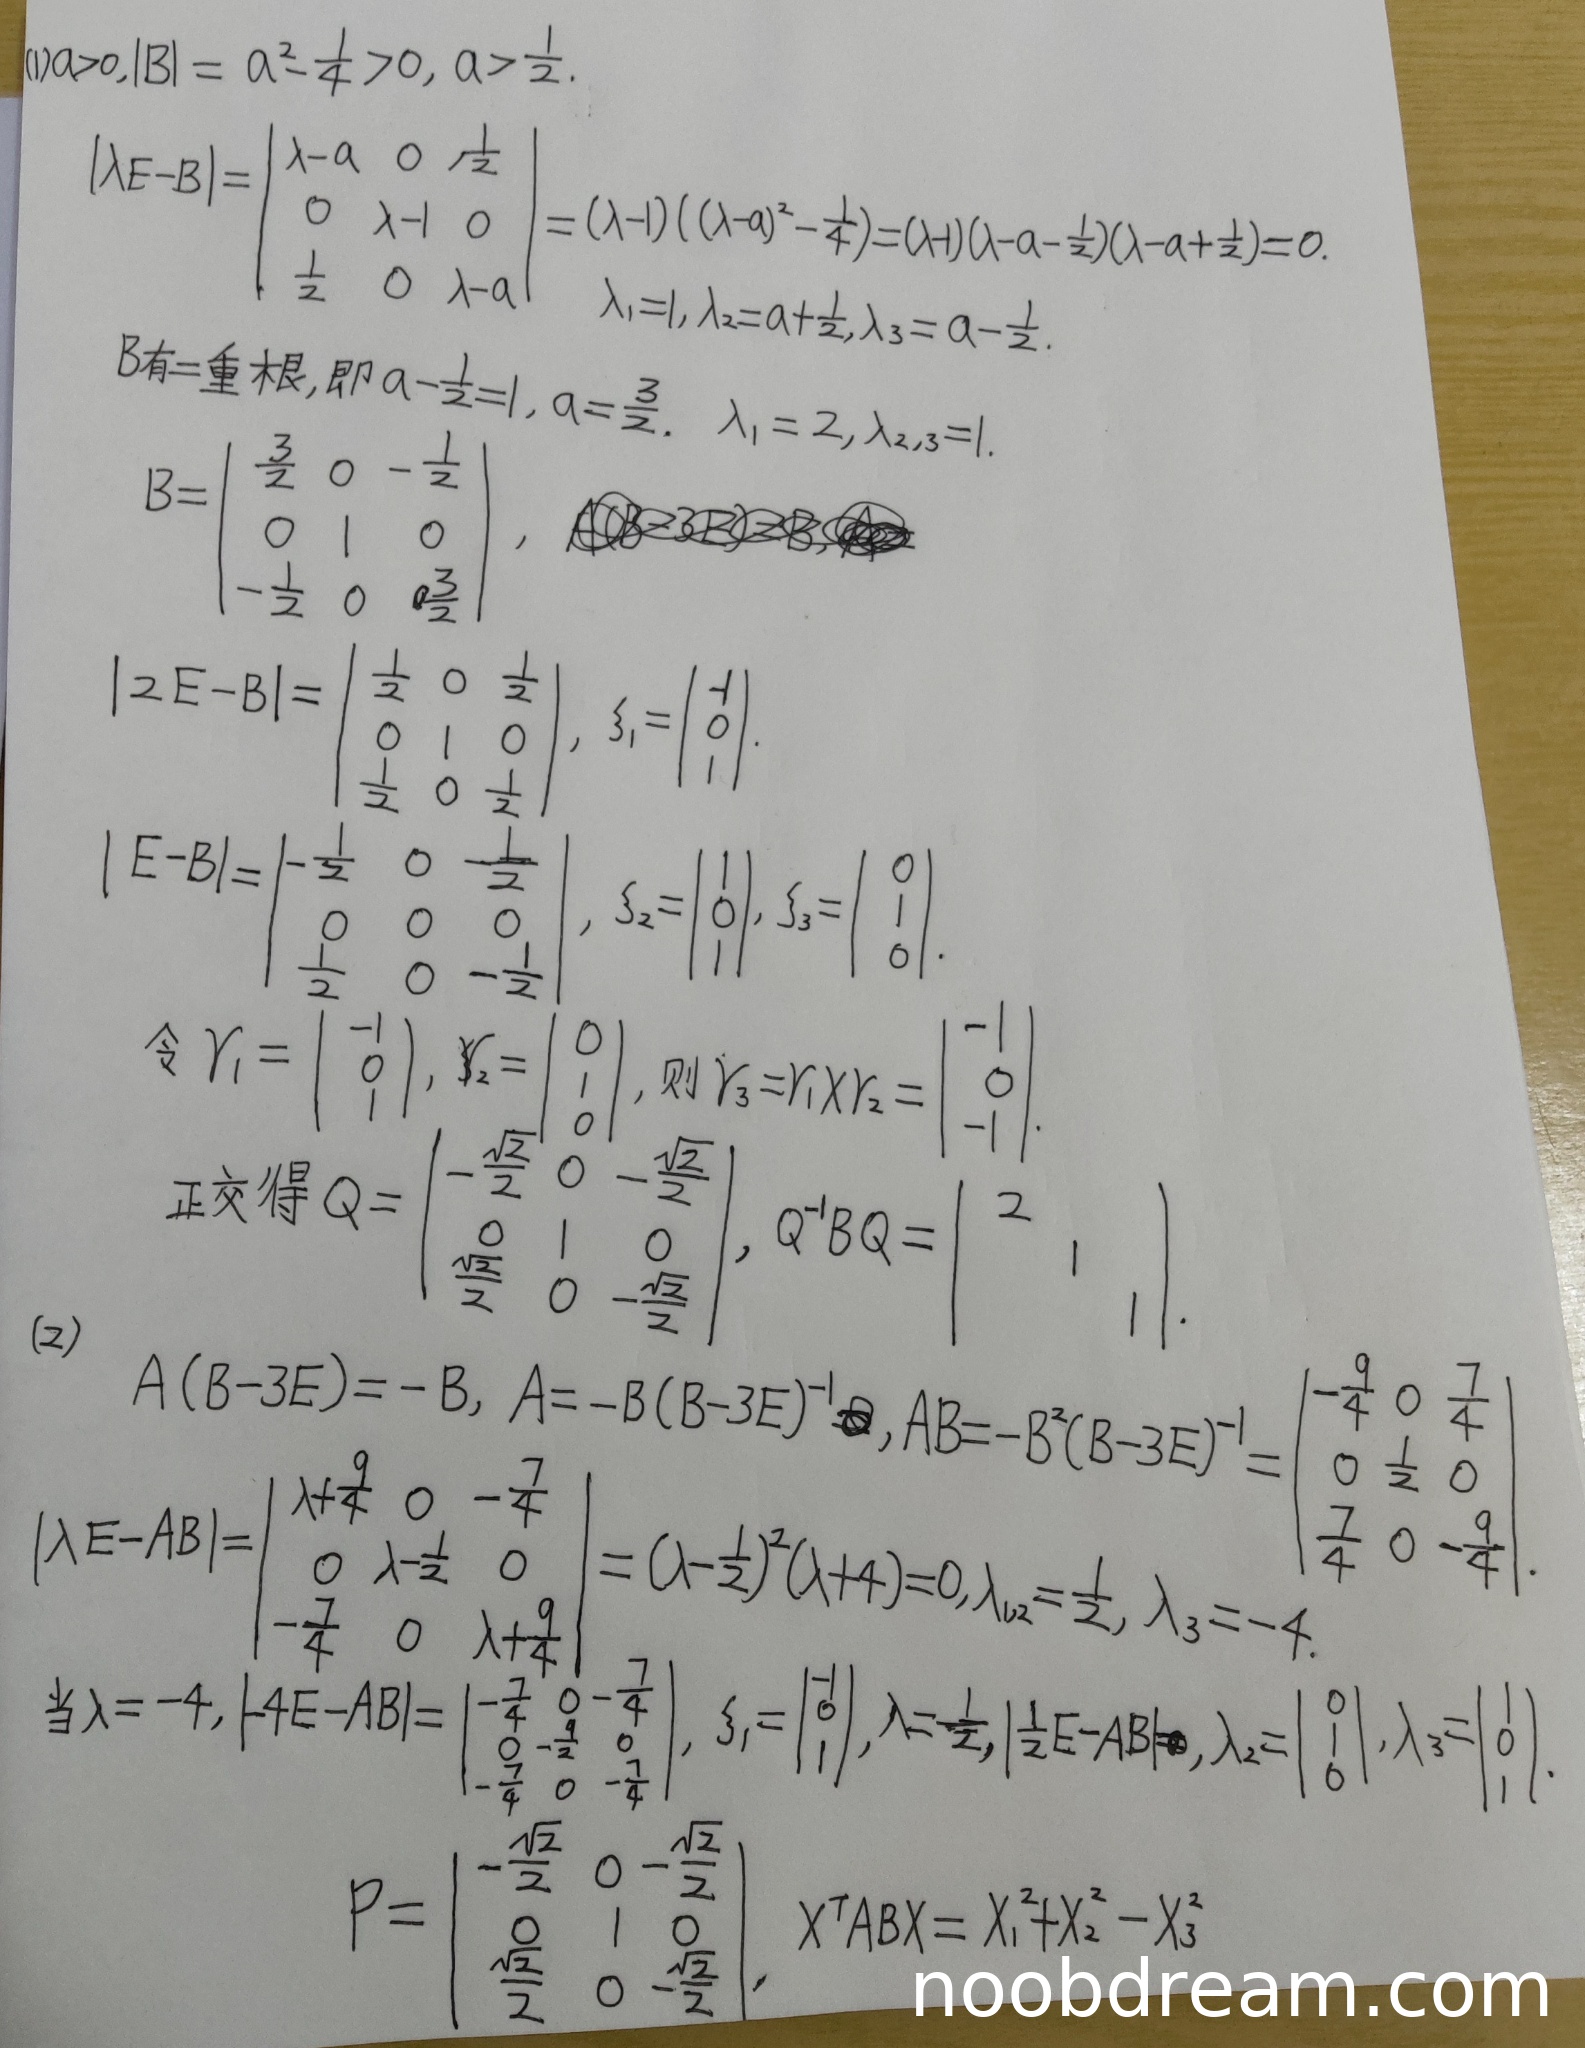 (1) a>0, |B| = a² - 1/4 > 0, a > 1/2.
|λE-B| = | λ-a 0 1/2 ; 0 λ-1 0 ; 1/2 0 λ-a | = (λ-1)((λ-a)² - 1/4) = (λ-1)(λ-a-1/2)(λ-a+1/2) = 0.
λ₁=1, λ₂=a+1/2, λ₃=a-1/2.
B有二重根, 即a-1/2=1, a=3/2. λ₁=2, λ₂,₃=1.
B= | 3/2 0 -1/2 ; 0 1 0 ; -1/2 0 3/2 | ,
|2E-B| = | 1/2 0 1/2 ; 0 1 0 ; 1/2 0 1/2 | , ξ₁= | -1 ; 0 ; 1 | .
|E-B| = | -1/2 0 -1/2 ; 0 0 0 ; 1/2 0 -1/2 | , ξ₂= | 1 ; 0 ; 1 | , ξ₃= | 0 ; 1 ; 0 | .
令γ₁= | -1 ; 0 ; 1 | , γ₂= | 0 ; 1 ; 0 | , 则γ₃=γ₁×γ₂= | -1 ; 0 ; -1 | .
正交得Q= | -√2/2 0 -√2/2 ; 0 1 0 ; √2/2 0 -√2/2 | , Q⁻¹BQ= | 2 ; 1 ; 1 | .
(2)
A(B-3E)=-B, A=-B(B-3E)⁻¹, AB=-B²(B-3E)⁻¹= | -9/4 0 7/4 ; 0 1/2 0 ; 7/4 0 -9/4 | .
|λE-AB| = | λ+9/4 0 -7/4 ; 0 λ-1/2 0 ; -7/4 0 λ+9/4 | = (λ-1/2)²(λ+4)=0, λ₁,₂=1/2, λ₃=-4.
当λ=-4, |-4E-AB| = | -7/4 0 -7/4 ; 0 -9/2 0 ; -7/4 0 -7/4 | , ξ₁= | -1 ; 0 ; 1 | , λ=1/2, |1/2E-AB| , λ₂= | 0 ; 1 ; 0 | , λ₃= | 1 ; 0 ; 1 | .
P= | -√2/2 0 -√2/2 ; 0 1 0 ; √2/2 0 -√2/2 | , XᵀABX = X₁²+X₂²-X₃²
noobdream.com